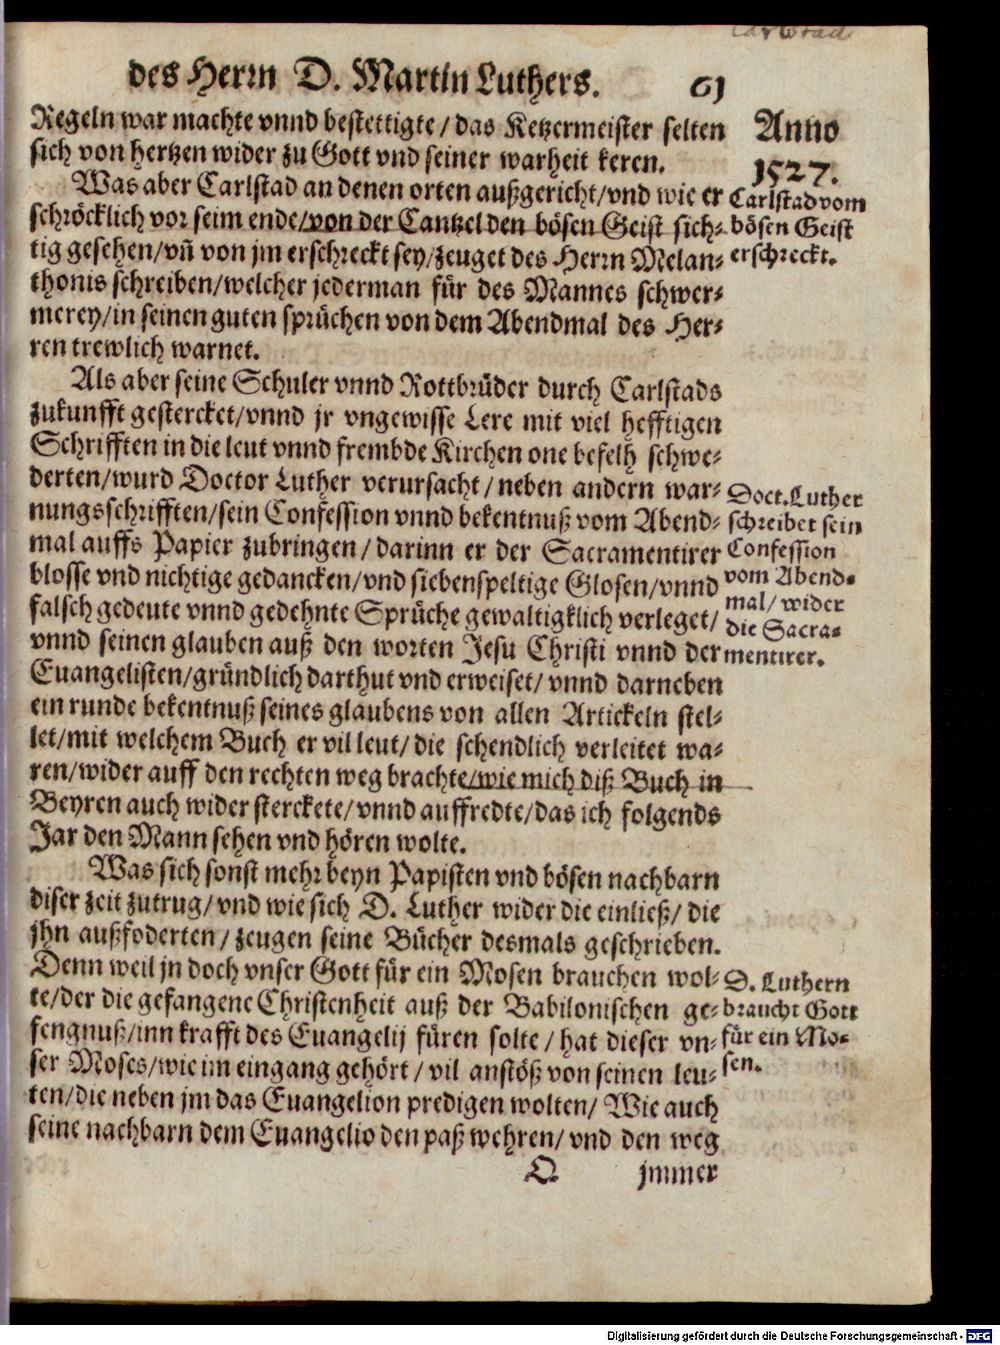 Carlstad
des Herrn D. Martin Luthers. 61
Regeln war machte vnnd bestettigte / das Ketzermeister selten
sich von hertzen wider zu Gott vnd seiner warheit keren.
Anno
1527.
Was aber Carlstad an denen orten außgericht/vnd wie er
schröcklich vor seim ende/von der Cantzel den bösen Geist sich-
tig gesehen/vñ von jm erschreckt sey/zeuget des Herrn Melan-
thonis schreiben/welcher jederman für des Mannes schwer-
merey/in seinen guten sprüchen von dem Abendmal des Her-
ren trewlich warnet.
Carlstad vom
bösen Geist
erschreckt.
Als aber seine Schuler vnnd Rottbrüder durch Carlstads
zukunfft gestercket/vnnd jr vngewisse Lere mit viel hefftigen
Schrifften in die leut vnnd frembde Kirchen one befelh schwe-
derten/wurd Doctor Luther verursacht / neben andern war-
nungsschrifften/sein Confession vnnd bekentnuß vom Abend-
mal auffs Papier zubringen / darinn er der Sacramentirer
blosse vnd nichtige gedancken/vnd siebenspeltige Glosen/vnnd
falsch gedeute vnnd gedehnte Sprüche gewaltigklich verleget/
vnnd seinen glauben auß den worten Jesu Christi vnnd der
Euangelisten/gründlich darthut vnd erweiset/ vnnd darneben
ein runde bekentnuß seines glaubens von allen Artickeln stel-
let/mit welchem Buch er vil leut/ die schendlich verleitet wa-
ren/wider auff den rechten weg brachte/wie mich diß Buch in
Beyren auch wider sterckete/vnnd auffredte/das ich folgends
Jar den Mann sehen vnd hören wolte.
Doct. Luther
schreibet sein
Confession
vom Abend-
mal/ wider
die Sacra-
mentirer.
Was sich sonst mehr beyn Papisten vnd bösen nachbarn
diser zeit zutrug/vnd wie sich D. Luther wider die einließ/ die
jhn außfoderten / zeugen seine Bücher desmals geschrieben.
Denn weil jn doch vnser Gott für ein Mosen brauchen wol-
te/der die gefangene Christenheit auß der Babilonischen ge-
fengnuß/inn krafft des Euangelij füren solte / hat dieser vn-
ser Moses/wie im eingang gehört / vil anstöß von seinen leu-
ten/die neben jm das Euangelion predigen wolten/ Wie auch
seine nachbarn dem Euangelio den paß wehren/ vnd den weg
D. Luthern
braucht Gott
für ein Mo-
sen.
Q jmmer
Digitalisierung gefördert durch die Deutsche Forschungsgemeinschaft - DFG